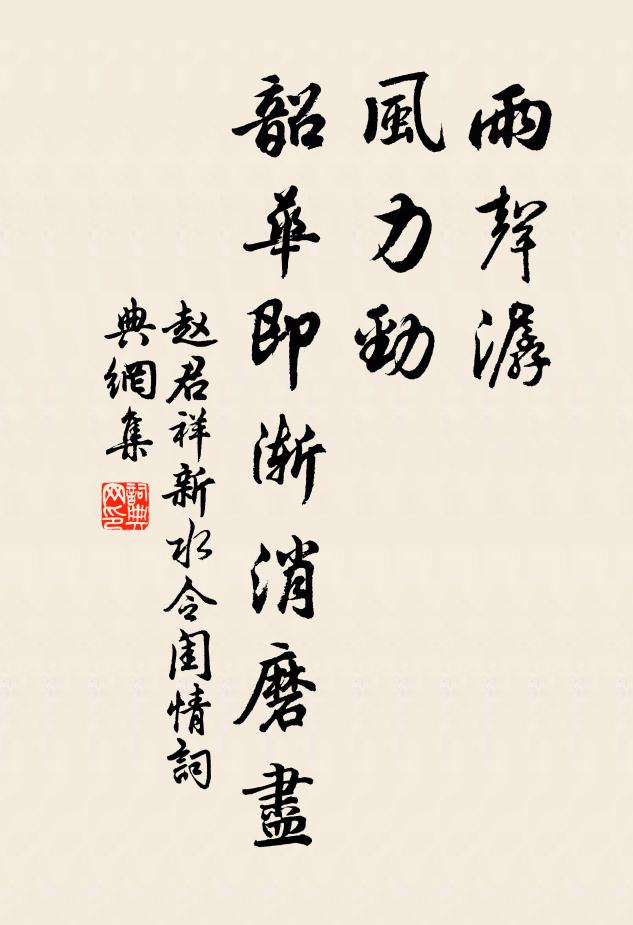 雨聲潺
風力勁
韶華即漸消磨盡
赵君祥新水令閨情詞
典網集
詞典
网印